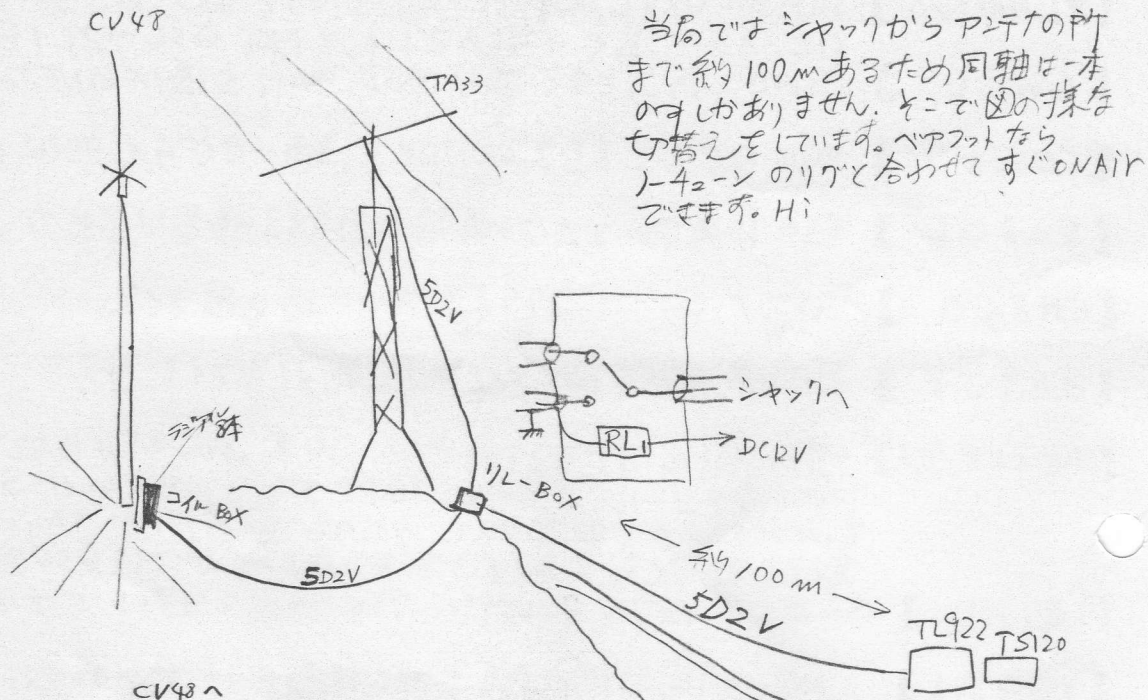 CV48
当局では シャックから アンテナの所
まで 約100mあるため 同軸は一本
のずしかありません. そこで図の様な
切替えをしています。ベアフットなら
ノーチューンのリグと合わせて すぐONAir
できます。Hi
TA33
5D2V
シャックへ
RL1
DC12V
ラジアル 8本
コイルBOX
リレーBOX
5D2V
約100m
5D2V
TL922 TS120
CV48へ